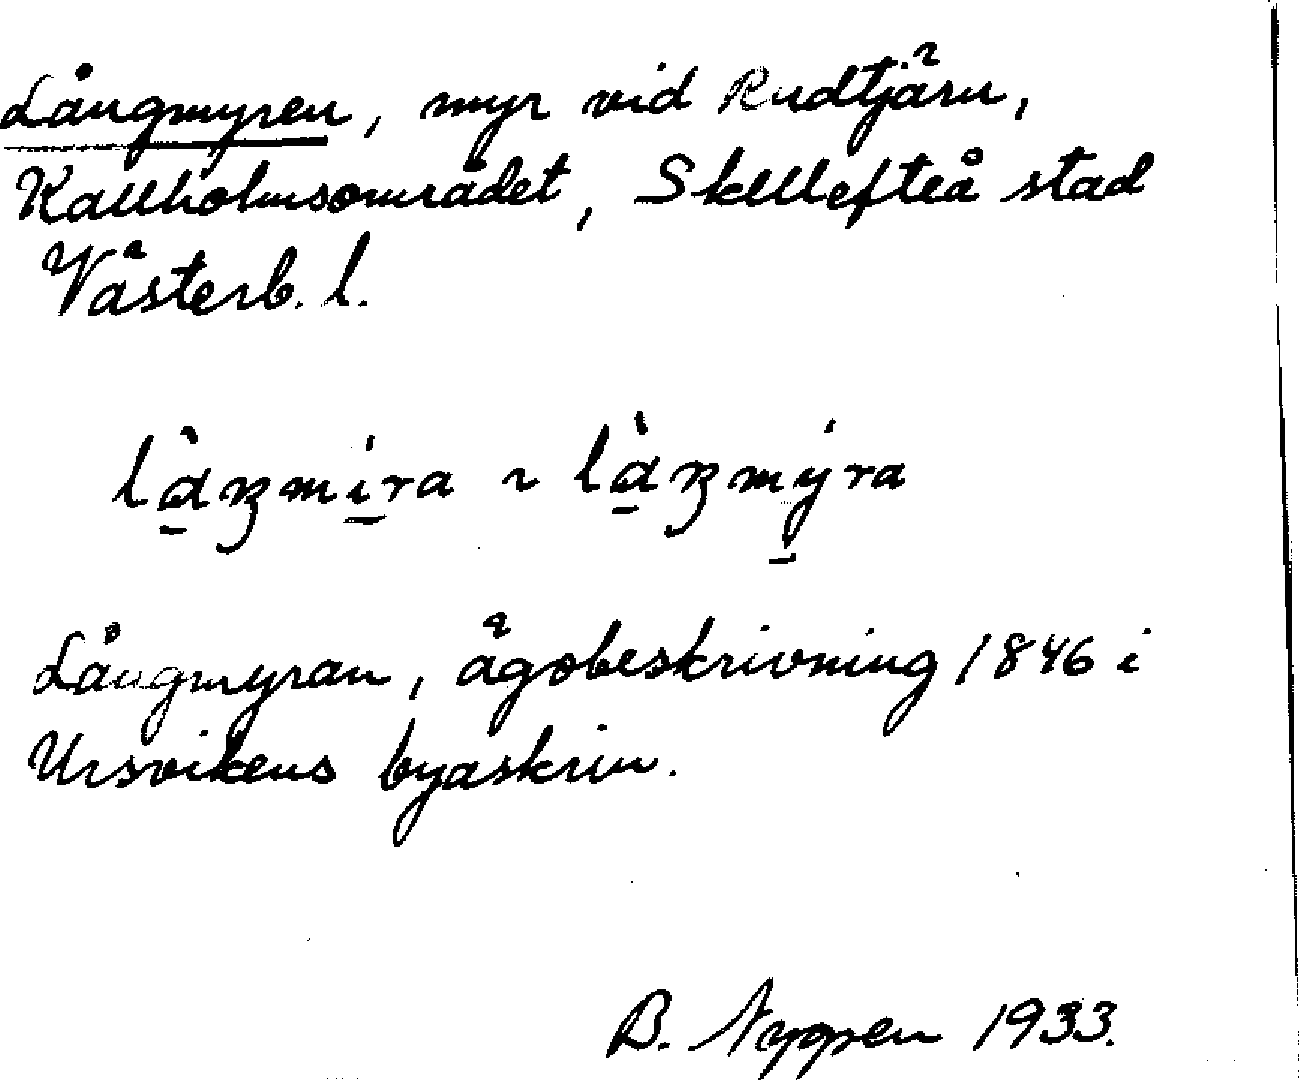 Långmyren, myr vid Rudtjärn,
Kallholmsområdet, Skellefteå stad
Västerb. l.
Långmyran, ägobeskrivning 1846 i
Ursvikens byaskrin.
B. Nygren 1933.